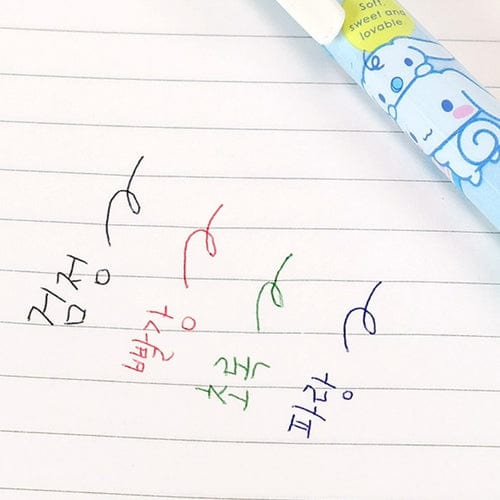 Soft,
sweet and
lovable
검정
빨강
초록
파랑